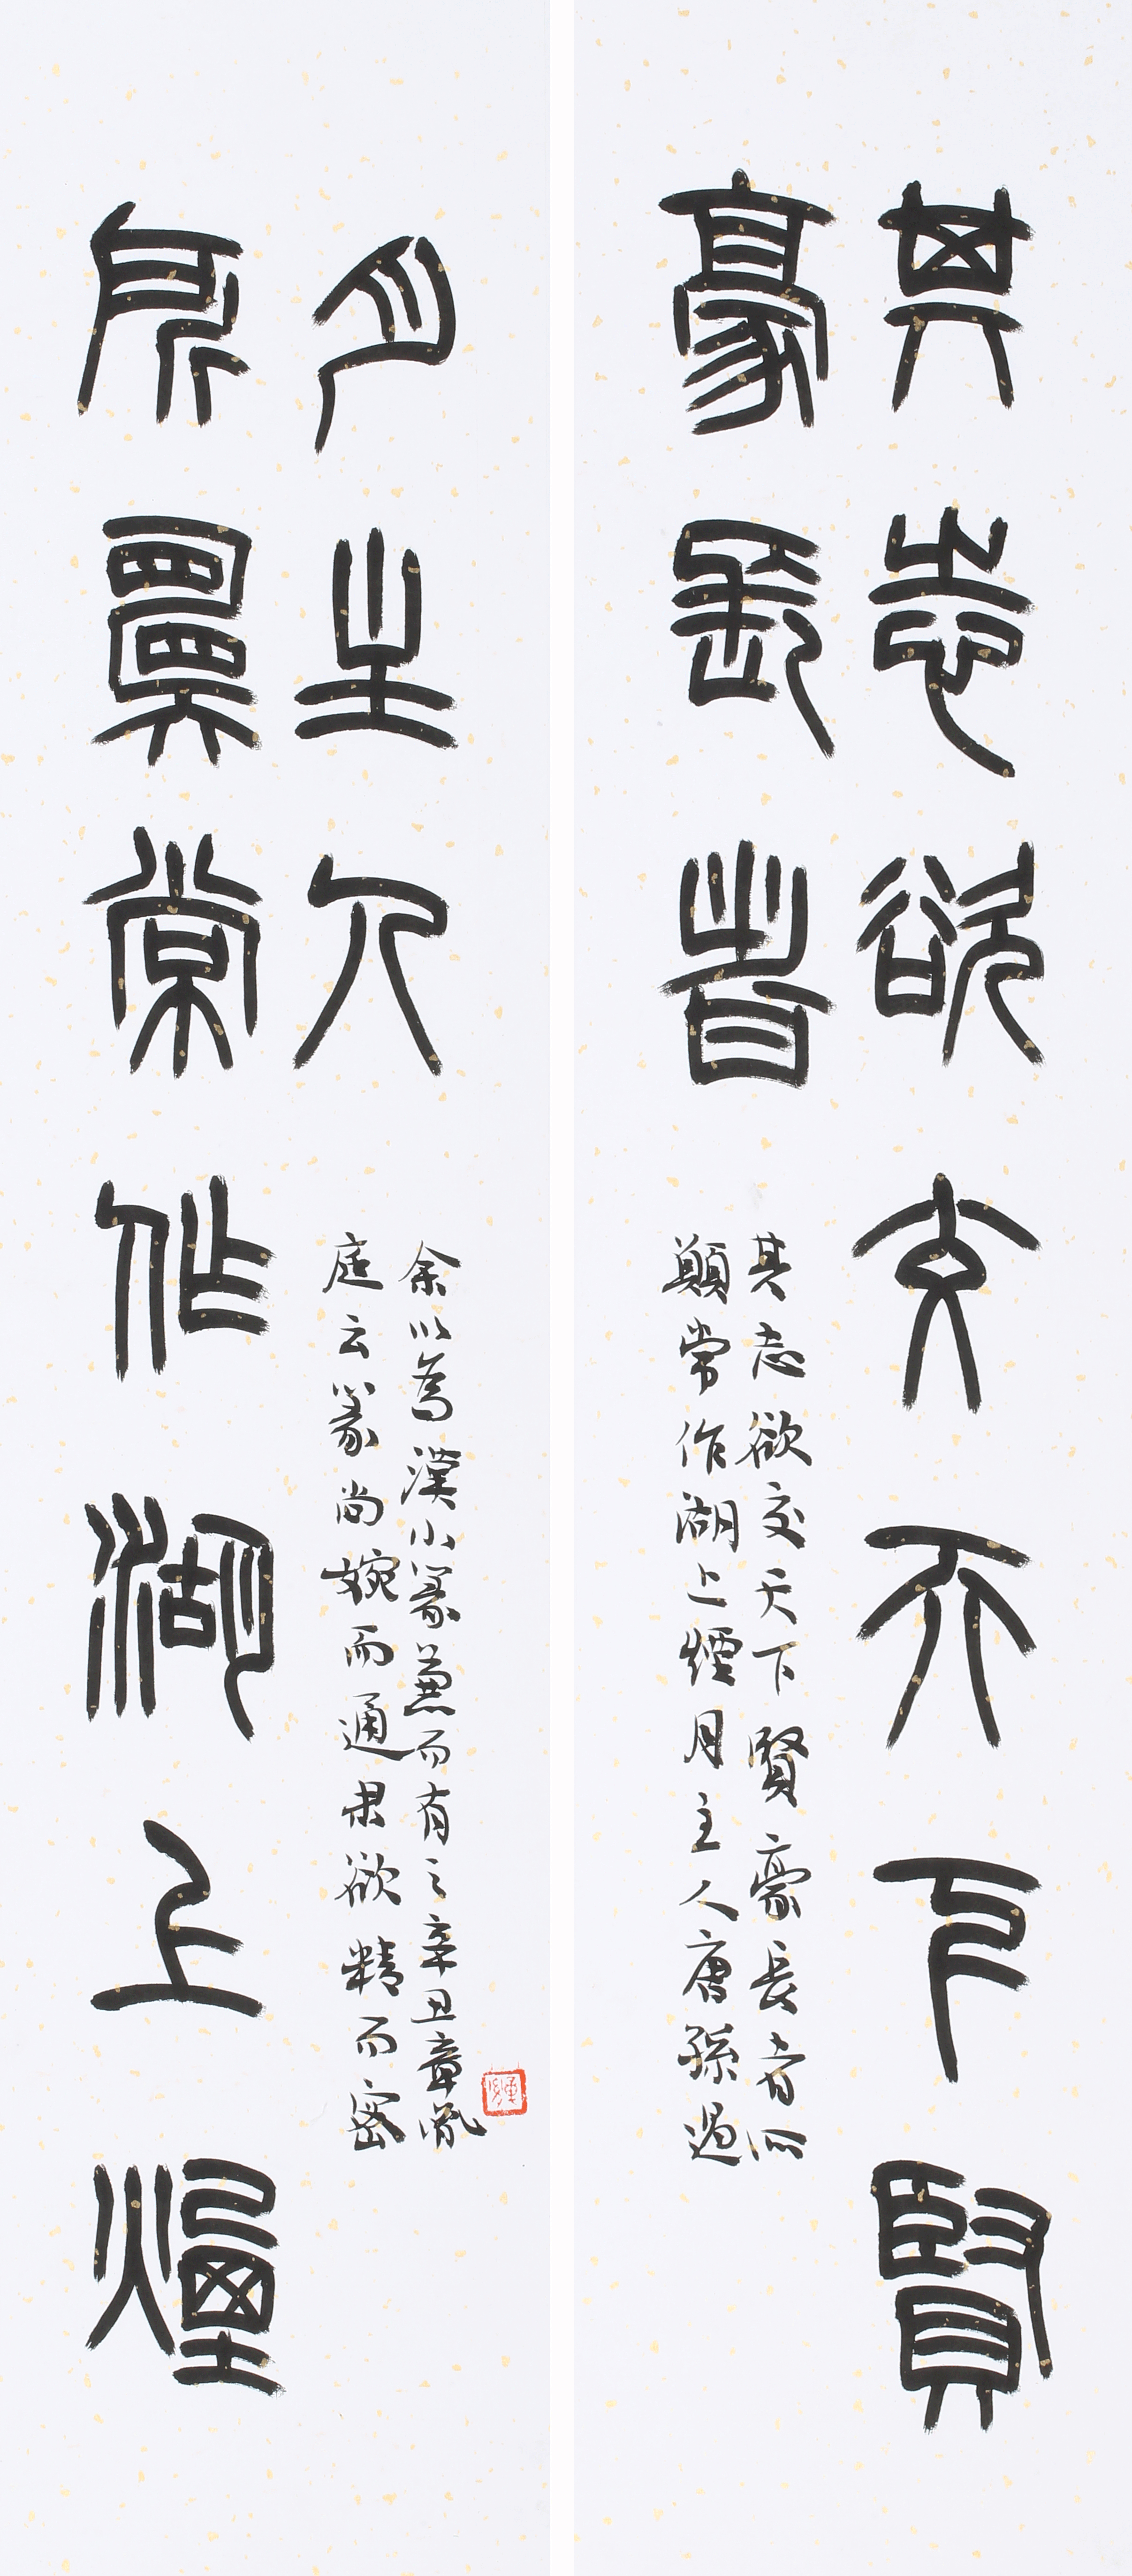 其志欲交天下賢
豪長者
其志欲交天下賢豪長者所
願常作湖上煙月主人唐孫過
所願常作湖上煙
月主人
庭云篆尚婉而通隶欲精而密
余以為漢小篆兼而有之辛丑章胤